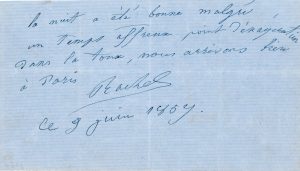 la nuit a été bonne malgré
un temps affreux point d'exagération
dans la toux, nous arrivons bien
à Paris
Rachel
ce 9 juin 1857.